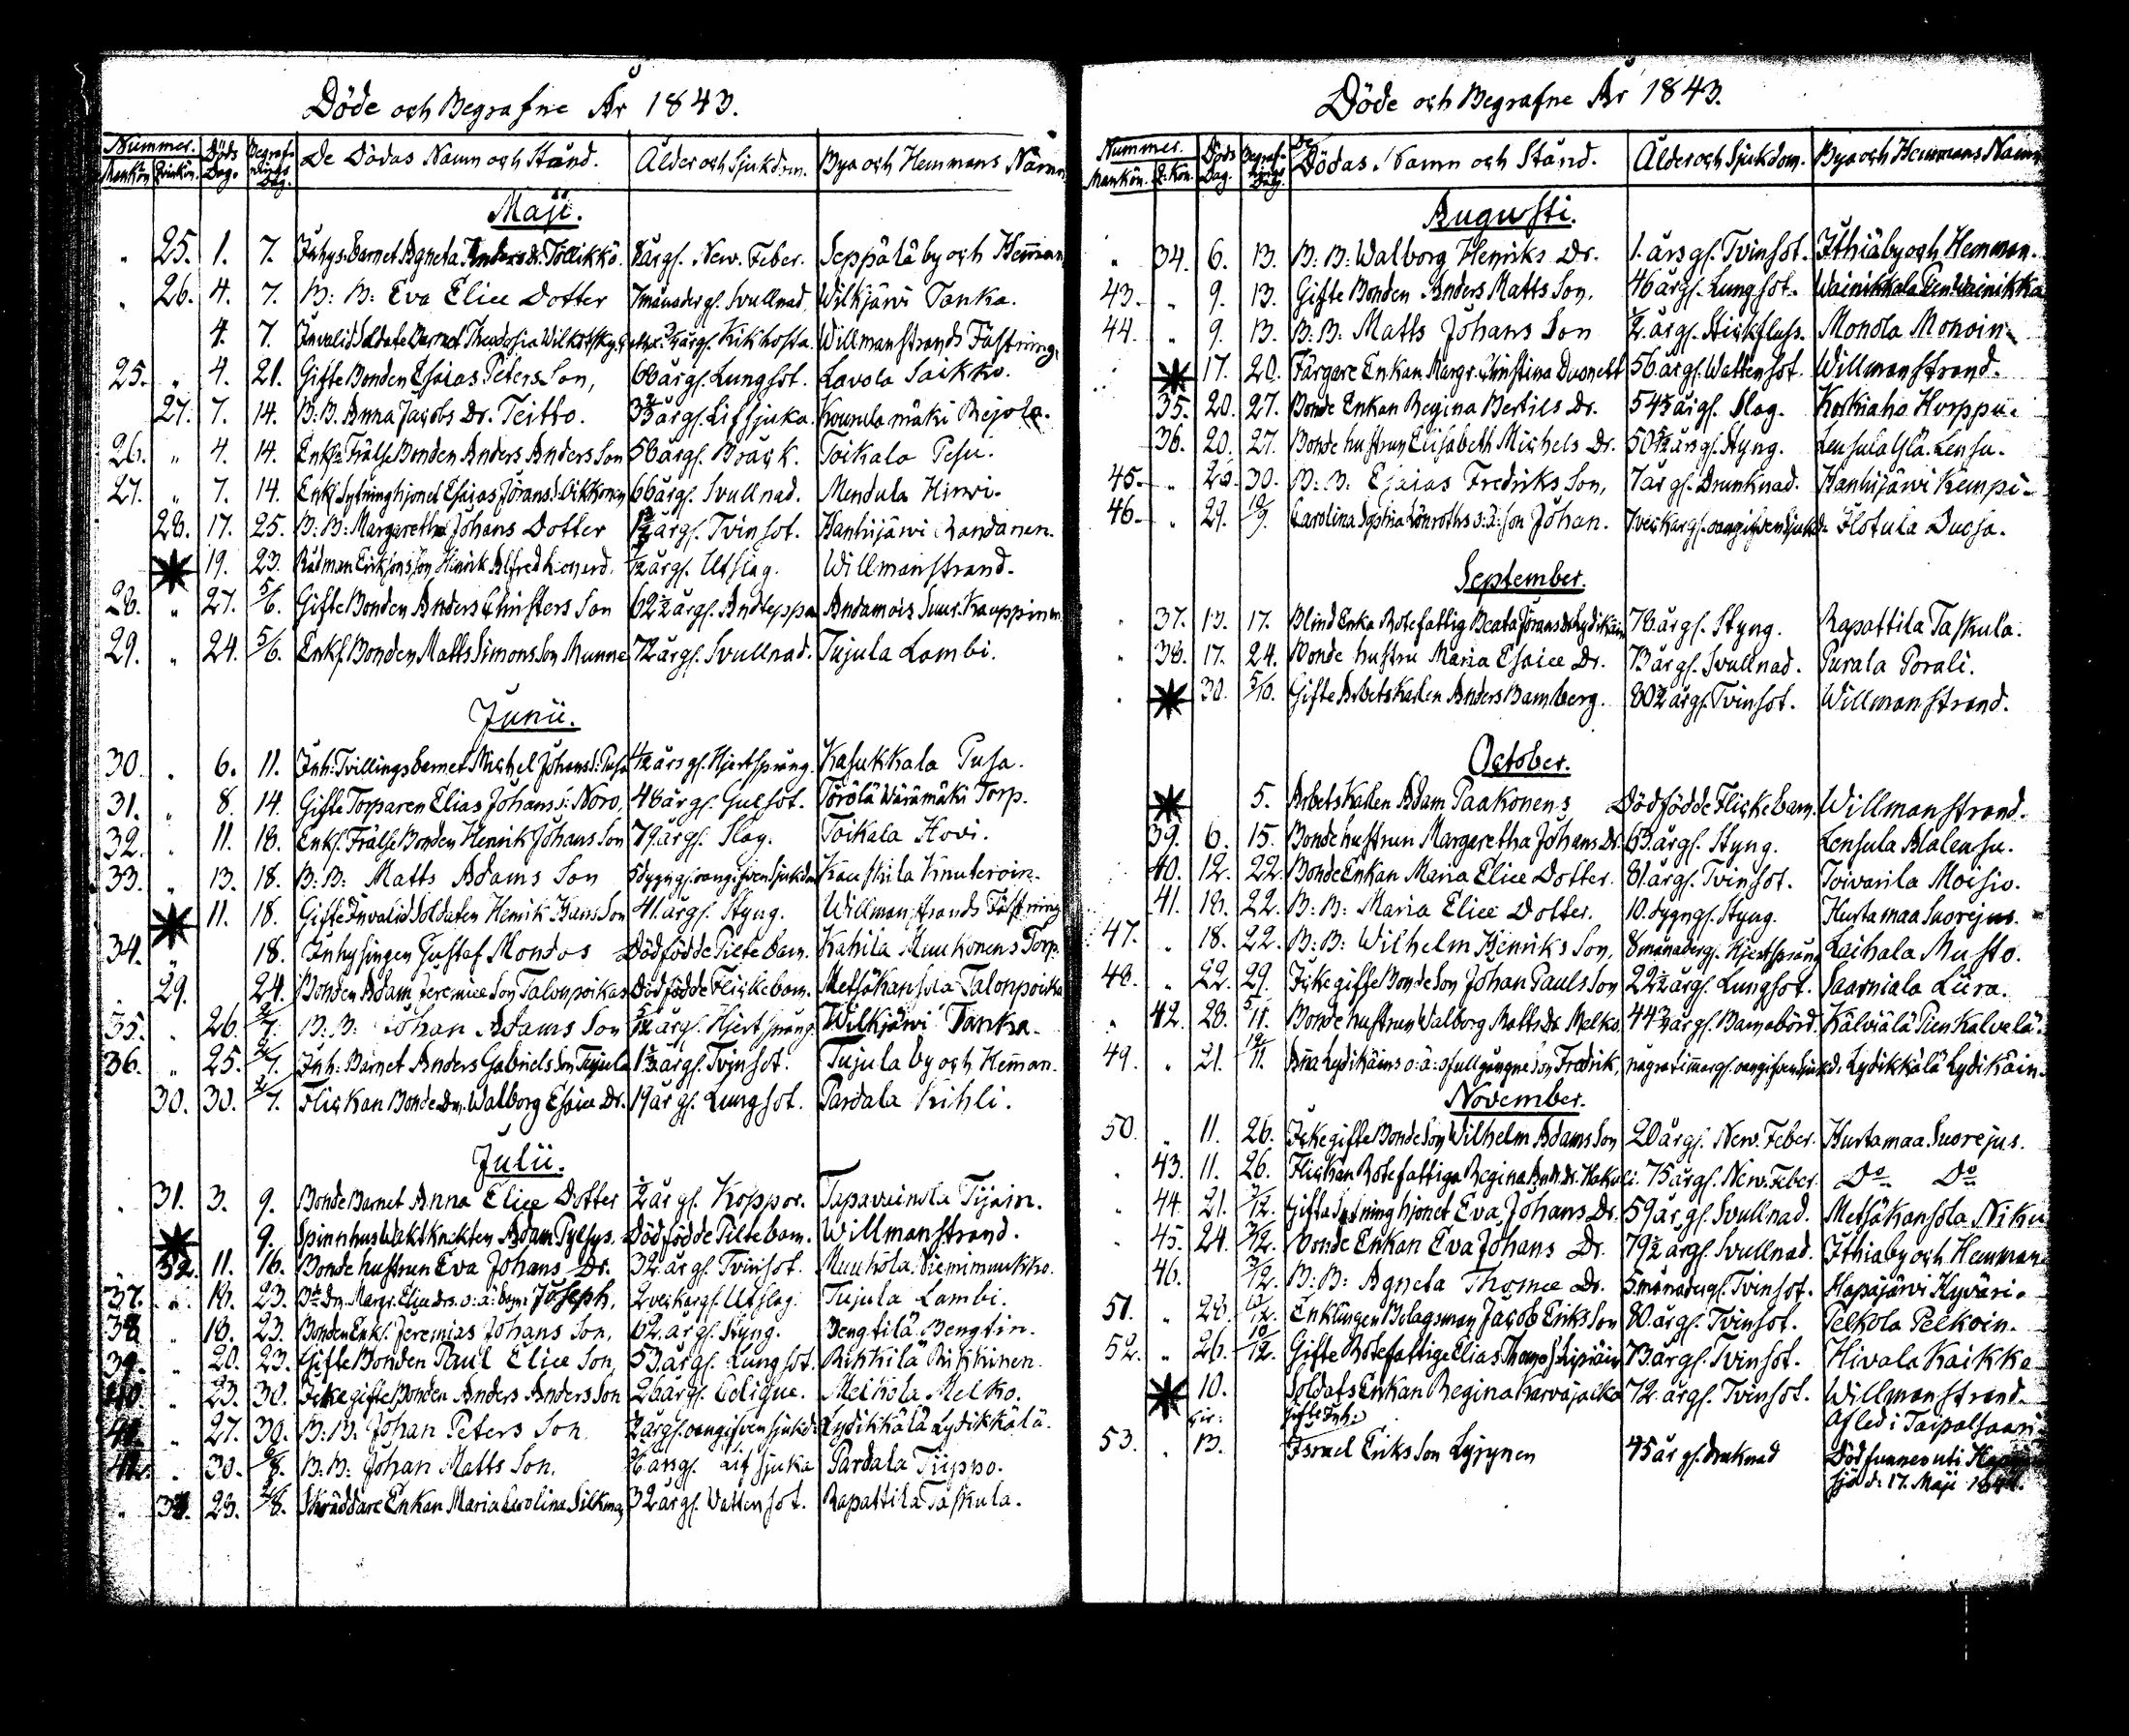 Döde och Begrafne År 1843.
Nummer. Döds Dag. Begrafnings Dag. De Dödas Namn och Stånd. Ålder och Sjukdom. Bya och Hemmans Namn
Mankön Qvinkön.
Maji.
" 25. 1. 7. Inhys. Barnet Agneta Anders Dr. Töllikkö. årgl. Nerv. Feber. Seppälä by och Hemman
" 26. 4. 7. B: B: Eva Eliæ Dotter 7 månader gl. Svullnad. Wilkjärvi Tanka.
4. 7. Invalid Soldate Barnet Theodosia årgl. Kikhosta. Willmanstrands Fästning.
25. " 4. 21. Gifte Bonden Esaias Peters Son, 68 årgl. Lungsot. Lavola Saikko.
27. 7. 14. B: B. Anna Jacobs Dr. Teitto. årgl. Lifsjuka. Kounulamäki Rejola.
26. " 4. 14. Enkl. Frälse Bonden Anders Anders Son 56 årgl. Bråck. Toikala Pesu.
27. " 7. 14. Enkl. Sytninghjonet Esaias Jörans S. Wikkonen 66 årgl. Svullnad. Mendula Hirvi.
28. 17. 25. B: B: Margaretha Johans Dotter årgl. Tvinsot. Hanhijärvi Randanen.
19. 23. Rådman Erikssons Son Henrik Alfred Leonard. 1/2 årgl. Utslag. Willmanstrand.
28. " 27. 5/6. Gifte Bonden Anders Christers Son 62 1/2 årgl. Andteppa Andamois Suur. Kauppinen.
29. " 24. 5/6. Enkl. Bonden Matts Simons Son Munne 72 årgl. Svullnad. Tujula Lambi.
Junii.
30. " 6. 11. Inh: Tvillingsbarnet Michel Johans S: Pusa årsgl. Hjertsprång. Kasukkala Pusa.
31. " 8. 14. Gifte Torparen Elias Johans S: Noro, 46 årgl. Gulsot. Törölä Wärämäki Torp.
32. " 11. 18. Enkl. Frälse Bonden Henrik Johans Son 79. årgl. Slag. Toikala Hovi.
33. " 13. 18. B: B: Matts Adams Son 5 dygn gl. oangifven sjukdom Kauskila Knuteroin.
11. 18. Gifte Invalid Soldaten Henrik Hans Son 41. årgl. Styng. Willmanstrands Fästning
34. " 18. Inhysingen Gustaf Mondos Dödfödde Pilte Barn. Kahila Muukonens Torp.
" 29. 24. Bonden Adam Jeremiæ Son Talonpoikas Dödfödde Flickebarn. Metsäkansola Talonpoika
35. " 26. 2/7. B: B: Johan Adams Son årgl. Hjertsprång. Wilkjärvi Tanka.
36. " 25. 2/7. Inh: Barnet Anders Gabriels Son Tujula årgl. Tvinsot. Tujula by och Hemman.
30. 30. 2/7. Flickan Bonde Dr. Walborg Esaiæ Dr. 19 år gl. Lungsot. Pardala Kihli.
Julii.
" 31. 3. 9. Bonde Barnet Anna Eliæ Dotter 1/2 år gl. Koppor. Tapavainola Tijain.
9. Spinnhus Waktknekten Adam Pylsys. Dödfödde Piltebarn. Willmanstrand.
" 32. 11. 16. Bonde hustrun Eva Johans Dr. 32. år gl. Tvinsot. Muukola Niemimuukko.
37. " 18. 23. Bde Dr. Margr. Eliæ Drs. o: ä: barn: Joseph. 2 veckargl. Utslag. Tujula Lambi.
38 " 18. 23. Bonden Enkl. Jeremias Johans Son, 62. årgl. Styng. Bengtilä Bengtin.
39. " 20. 23. Gifte Bonden Paul Eliæ Son, 53. årgl. Lungsot. Rikkilä Rikkinen.
40. " 23. 30. Icke gifte Bonden Anders Anders Son 26 årgl. Colique. Melkola Melko.
41. " 27. 30. B: B: Johan Peters Son 2 årgl. oangifven sjukd: Lydikkälä Lydikkälä.
42. " 30. 6/8. B: B: Johan Matts Son. årgl. Lifsjuka Pardala Tiippo.
" 33. 23. Skräddare Enkan Maria Carolina Silkman 32 årgl. Vattensot. Rapattila Taskula.
Döde och Begrafne År 1843.
Nummer. Döds Dag. Begrafnings Dag. De Dödas Namn och Stånd. Ålder och Sjukdom. Bya och Hemmans Namn
Mankön. Q. Kön.
Augusti.
" 34. 6. 13. B: B: Walborg Henriks Dr. 1. års gl. Tvinsot. Ithiä by och Hemman.
43. " 9. 13. Gifte Bonden Anders Matts Son, 46 årgl. Lungsot. Wainikkala Pien Wainikka
44. " 9. 13. B: B: Matts Johans Son 1/2 årgl. Stickfluss. Monola Monoin.
17. 20. Färgare Enkan Margr. Christina Duonett 56. årgl. Wattensot. Willmanstrand.
35. 20. 27. Bonde Enkan Regina Bertils Dr. 54 1/2 årgl. Slag. Koskiaho Hurppu.
36. 20. 27. Bonde hustrun Elisabeth Michels Dr. 50 årsgl. Styng. Lensula Ylä. Lensu.
45. " 23. 30. B: B: Esaias Fredriks Son, 7 år gl. Drunknad. Hanhijärvi Kempi.
46. " 29. 10/9. Carolina Sophia Lönroths o: ä: son Johan. 7 veckargl. oangifven sjukd: Ilotula Duosa.
September.
" 37. 13. 17. Blind Enka Rotefattig Beata Jörans Dr. Lydikäin 78. årgl. Styng. Rapattila Taskula.
" 38. 17. 24. Bonde hustru Maria Esaiæ Dr. 73 årgl. Svullnad. Purala Porali.
" 30. 5/10. Gifte Arbetskarlen Anders Bamberg. 80 1/2 årgl. Tvinsot. Willmanstrand.
October.
5. Arbetskarlen Adam Paakonens Dödfödde Flickebarn. Willmanstrand.
39. 6. 15. Bonde hustrun Margaretha Johans Dr. 63. årgl. Styng. Lensula Alalensu.
40. 12. 22. Bonde Enkan Maria Eliæ Dotter. 81. årgl. Tvinsot. Toivarila Moisio.
41. 18. 22. B: B: Maria Eliæ Dotter. 10. dygngl. Styng. Hurtamaa Suorejus.
47. " 18. 22. B: B: Wilhelm Henriks Son, 8 månadergl. Hjertsprång Laihala Musto.
48. " 22. 29. Icke gifte Bonde Son Johan Pauls Son 22 1/2 årgl. Lungsot. Saarniala Liira.
" 42. 28. 5/11. Bonde hustrun Walborg Matts Dr. Melko. 44 årgl. Barnsbörd. Kälviälä Pien Kälvelä.
49. " 21. Anna Lydikäins o: ä: ofullgångne Son Fredrik, några timmargl. oangifven sjukd: Lydikkälä Lydikäin.
November.
50. " 11. 26. Icke gifte Bonde Son Wilhelm Adams Son 20 årgl. Nerv. Feber. Hurtamaa Suorejus.
" 43. 11. 26. Flickan Rotefattiga Regina And: Dr. Hakuli 75 årgl. Nerv. Feber. Do Do
" 44. 21. 3/12. Gifta Sytninghjonet Eva Johans Dr. 59 år gl. Svullnad. Metsäkansola Niku
" 45. 24. 3/12. Bonde Enkan Eva Johans Dr. 79 1/2 årgl. Svullnad. Ithiä by och Hemman
46. 3/12. B: B: Agneta Thomæ Dr. 5 månadergl. Tvinsot. Hapajärvi Hyväri.
51. " 28. 10/12. Enklingen Bolagsman Jacob Eriks Son 80. årgl. Tvinsot. Pelkola Pelkoin.
52. " 26. 10/12. Gifte Rotefattige Elias Thomæ S. Lipiäin 73 årgl. Tvinsot. Hivala Kaikka
10. Soldats Enkan Regina Karvajalka 72. årgl. Tvinsot. Willmanstrand.
53. " 13. Gifte Inh: Israel Eriks Son Lyrynen 45 år gl. druknad Afled i Taipalsaari
Död funnen uti
sjö d: 17. Maji 1844.